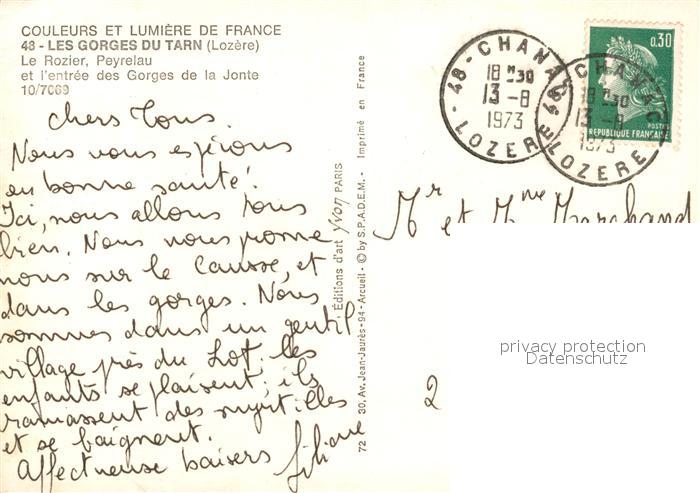 COULEURS ET LUMIÈRE DE FRANCE
48 - LES GORGES DU TARN (Lozère)
Le Rozier, Peyrelau
et l'entrée des Gorges de la Jonte
10/7069
Chers Tous.
Nous vous espérons
en bonne santé!
Ici, nous allons tous
bien. Nous nous prome
nons sur le Causse, et
dans les gorges. Nous
sommes dans un gentil
village près du Lot. les
enfants se plaisent; ils
ramassent des myrtilles
et se baignent.
Affectueuse baisers
Éditions d'art yvon PARIS
72 30, Av. Jean-Jaurès - 94 - Arcueil - © by S.P.A.D.E.M. - Imprimé en France
48 - CHANAC
18 H 30
13 - 8
1973
LOZERE
48 - CHANAC
18 H 30
13 - 8
1973
LOZERE
0,30
POSTES
REPUBLIQUE FRANÇAISE
Mr et Mme Marchand
2
privacy protection
Datenschutz